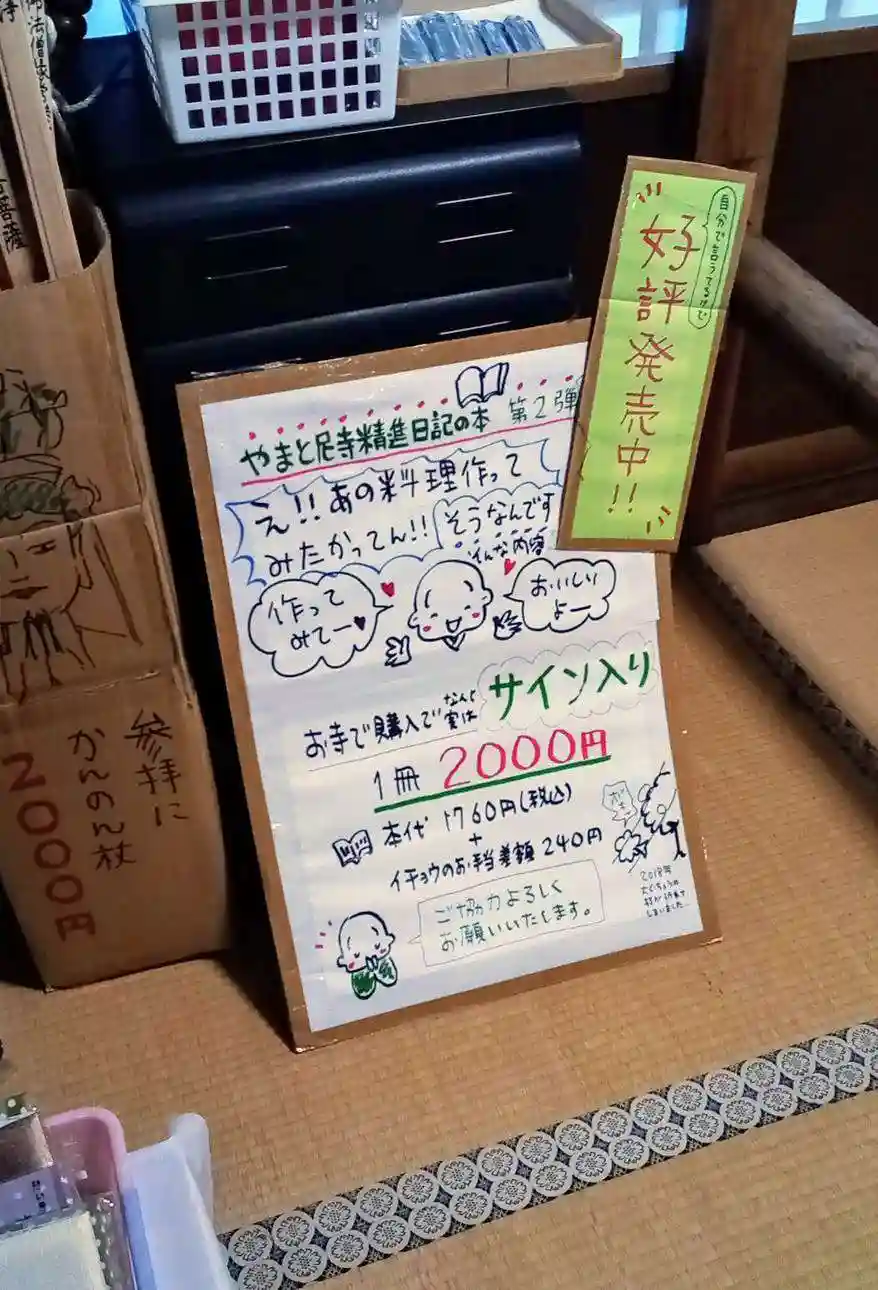 自分で言うてるけど
好評発売中!!
やまと尼寺精進日記の本 第2弾
え!! あの料理作って
みたかってん!!
そうなんです
そんな内容
作って
みてー♥
おいしい
よー
お寺で購入で
なんと
実は
サイン入り
1冊 2000円
本代 1760円(税込)
+
イチョウのお手当差額 240円
2018年
大いちょうの
枝が折れて
しまいました…
ご協力よろしく
お願いいたします。
参拝に
かんのん杖
2000円
菩薩